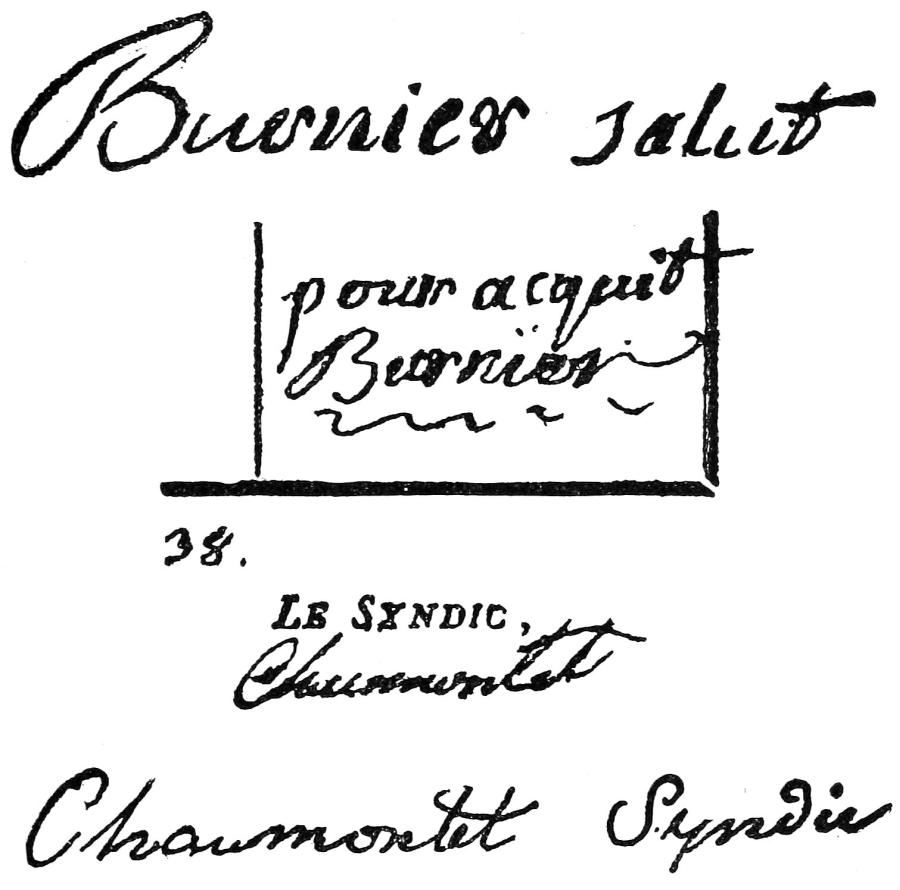 Burnier salut
pour acquit
Burnier
38.
LE SYNDIC,
Chaumontet
Chaumontet Syndic